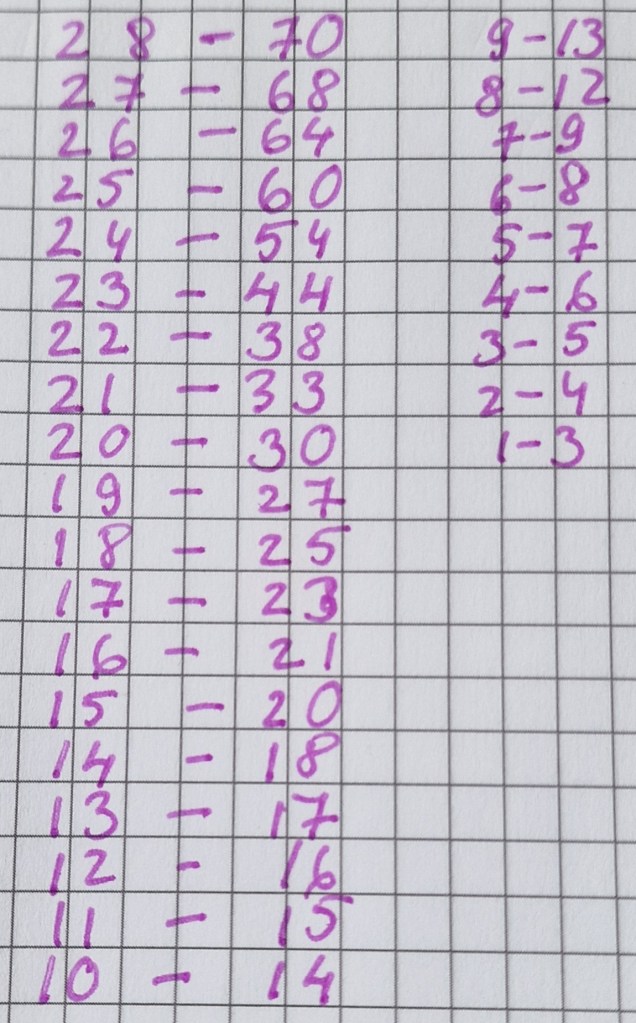 28 - 70
27 - 68
26 - 64
25 - 60
24 - 54
23 - 44
22 - 38
21 - 33
20 - 30
19 - 27
18 - 25
17 - 23
16 - 21
15 - 20
14 - 18
13 - 17
12 - 16
11 - 15
10 - 14
9 - 13
8 - 12
7 - 9
6 - 8
5 - 7
4 - 6
3 - 5
2 - 4
1 - 3